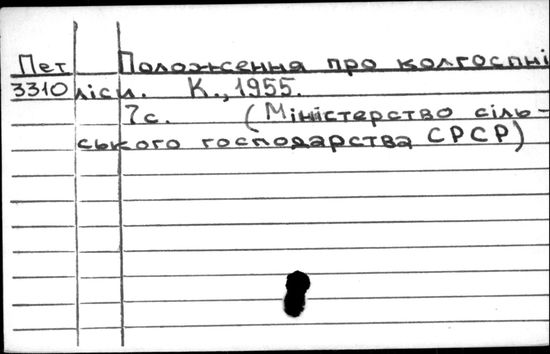 Пет Положення про колгоспні
3310 ліси. К., 1955.
7с. (Міністерство сіль-
ського господарства СРСР)